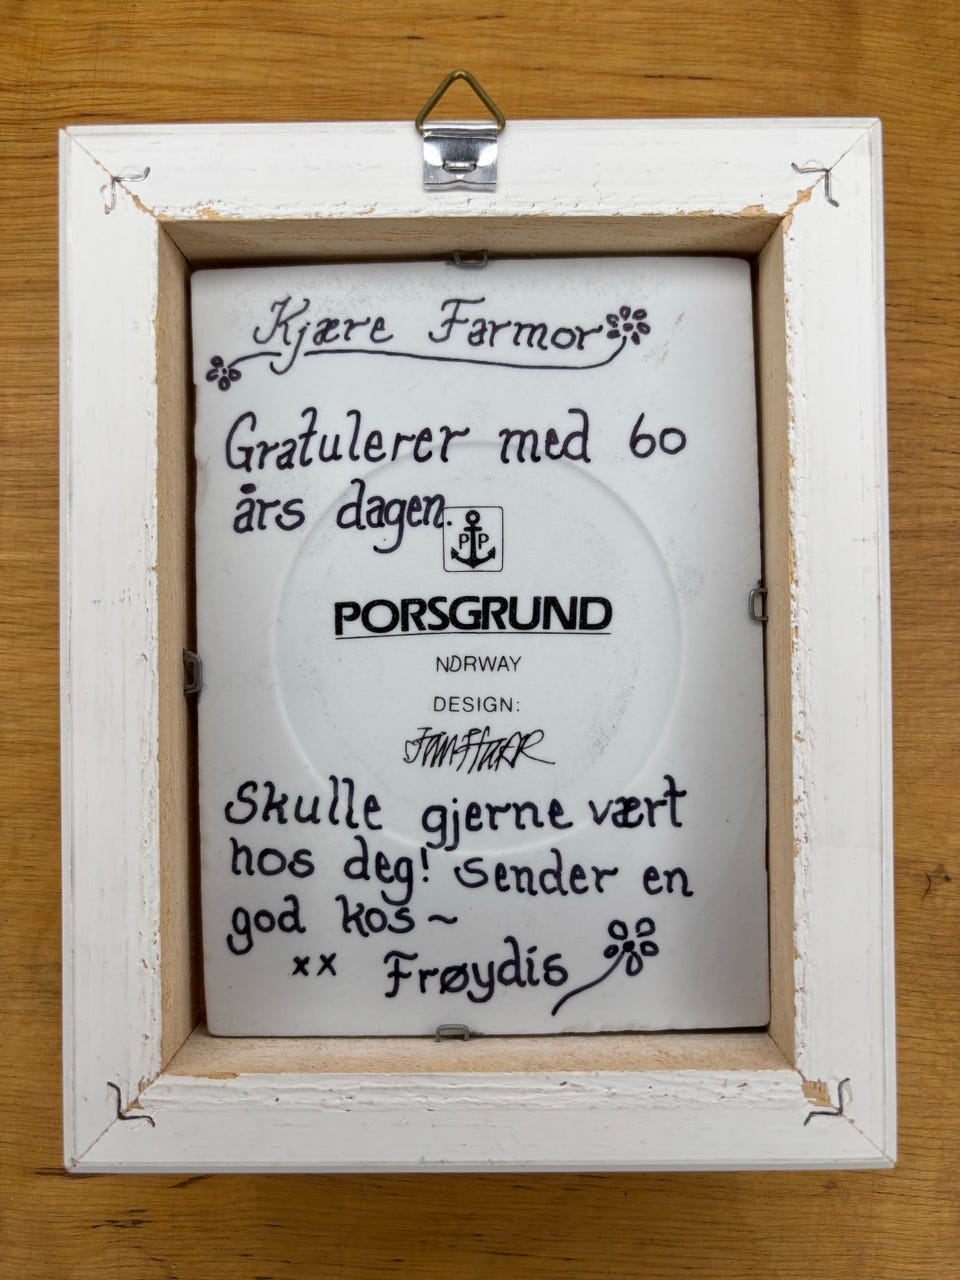 Kjære Farmor
Gratulerer med 60
års dagen.
PP
PORSGRUND
NORWAY
DESIGN:
Skulle gjerne vært
hos deg! Sender en
god kos ~
xx Frøydis